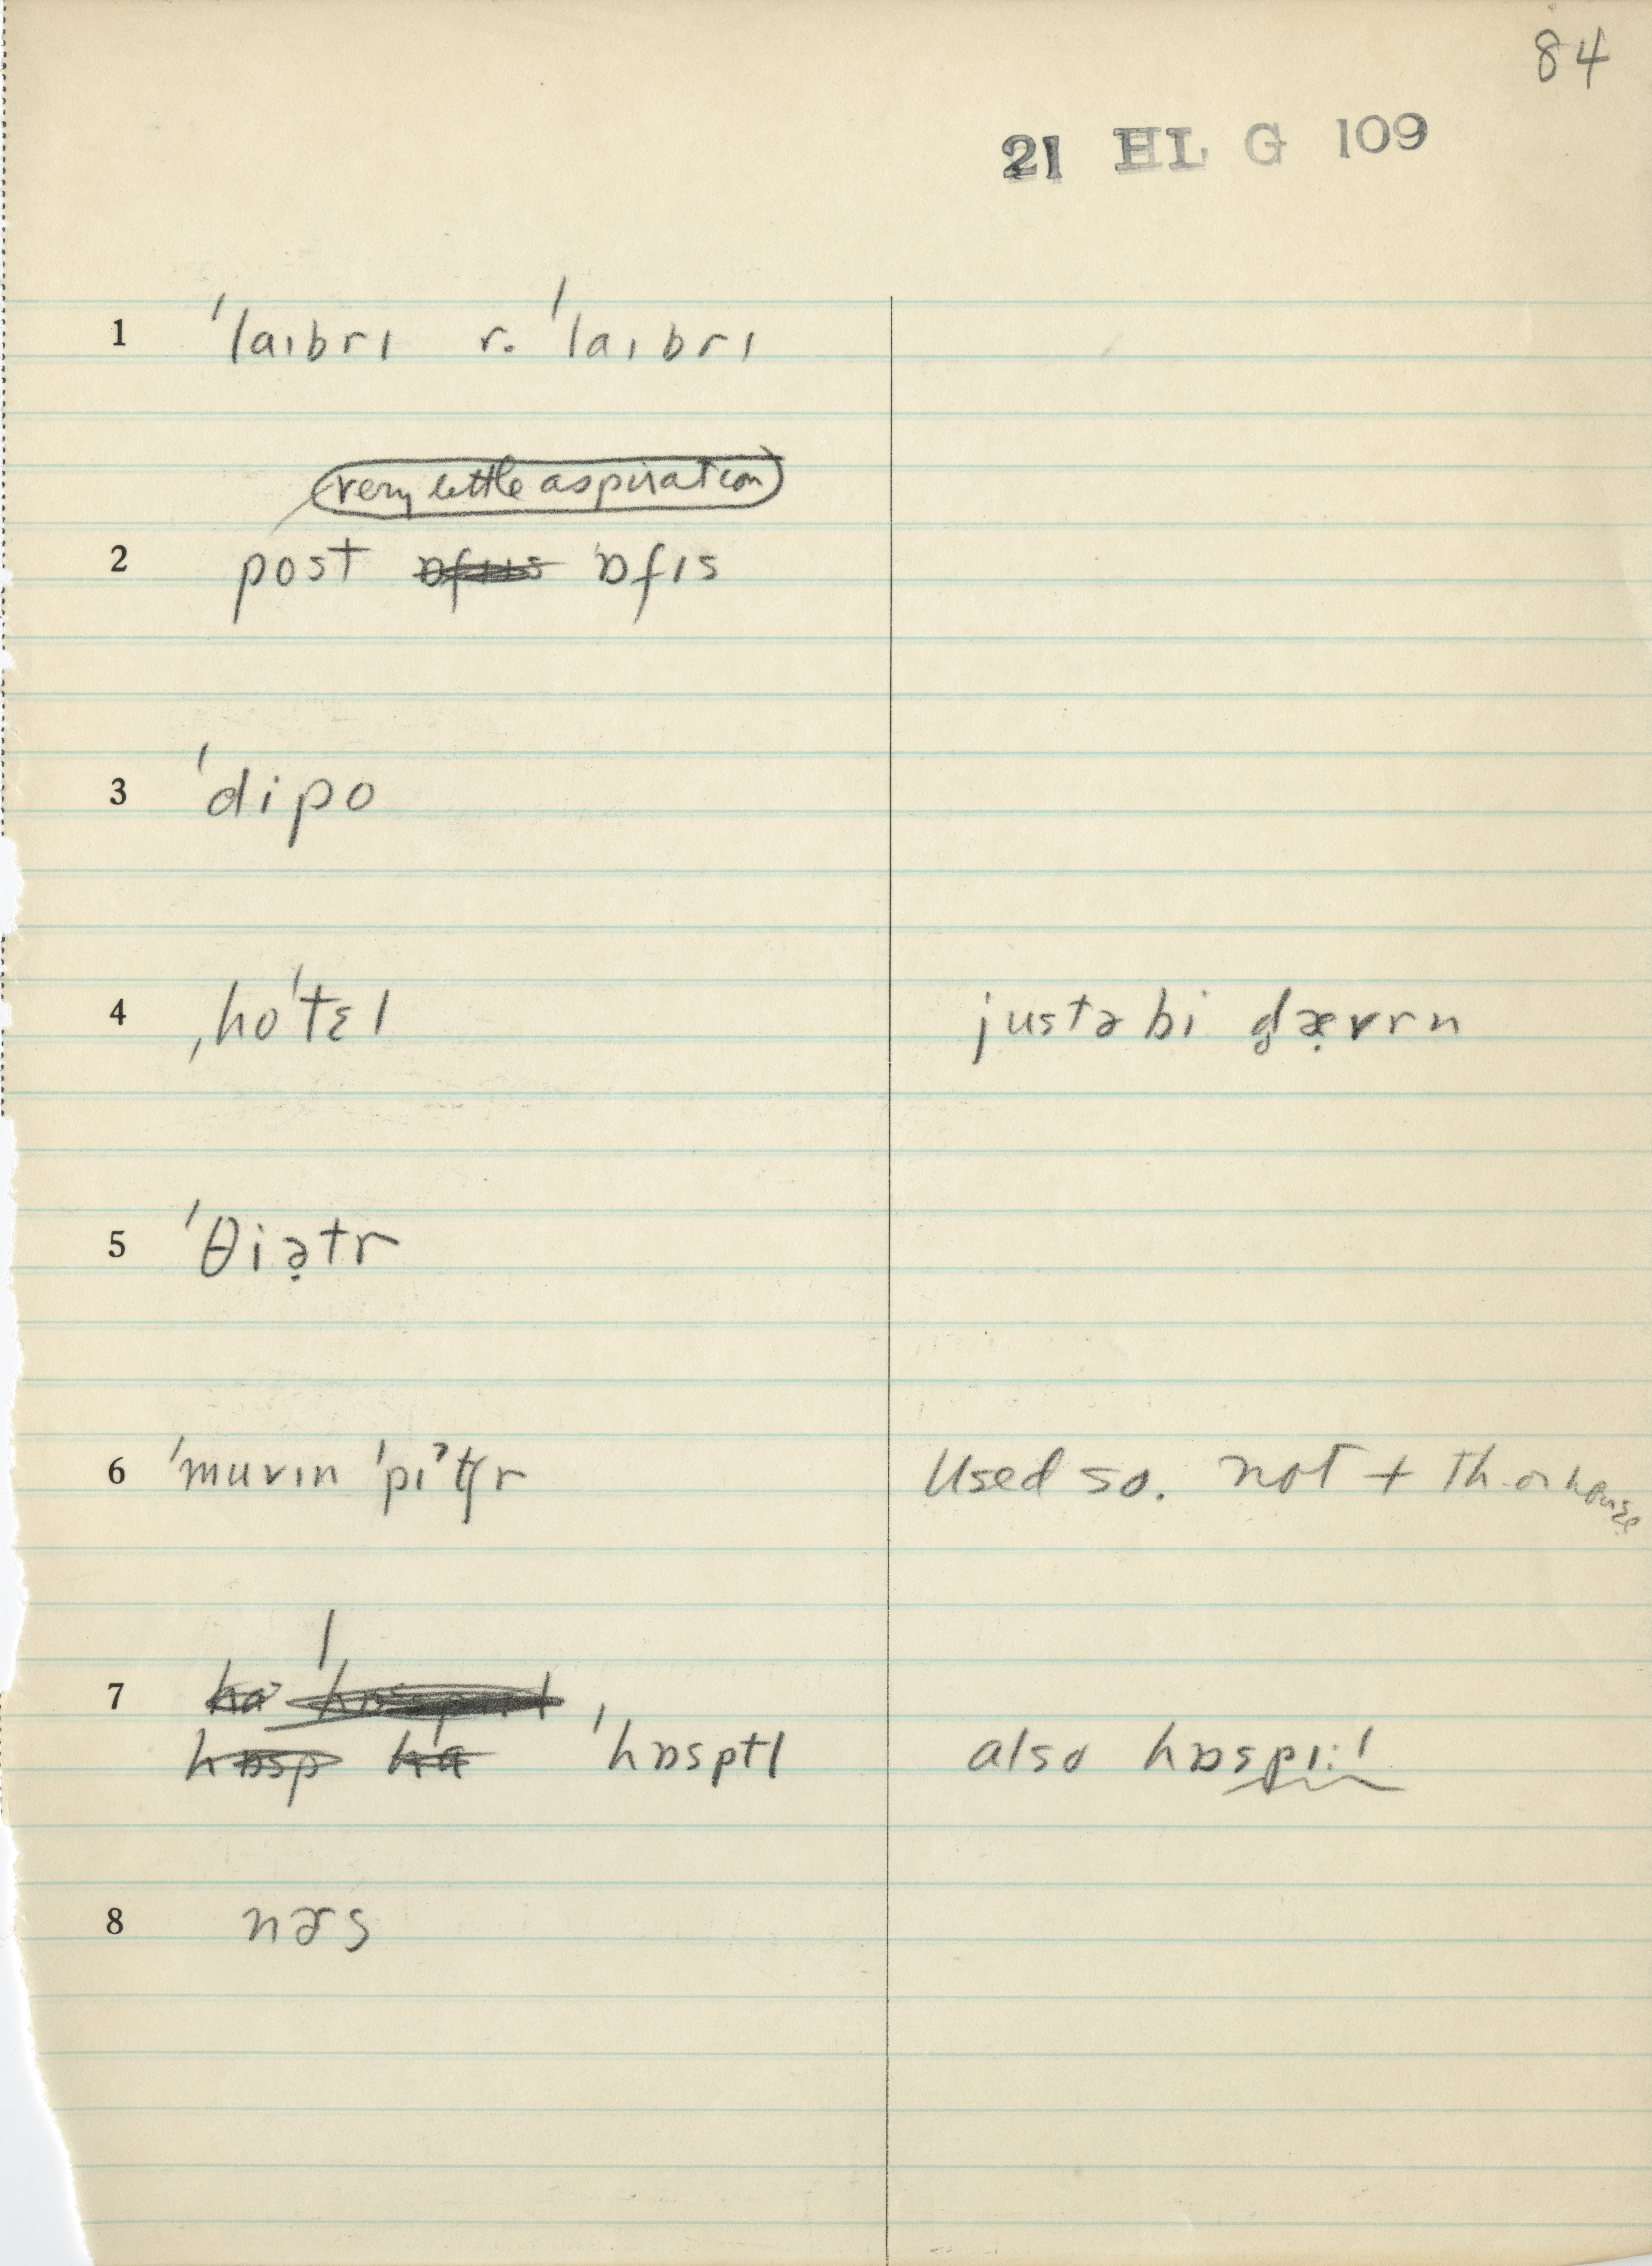 84
21 HL G 109
1 ˈlaɪbrɪ r. ˈlaɪbrɪ
very little aspiration
2 post ˈɒfɪs
3 ˈdipo
4 ˌhoˈtɛl justə bi d̥æ̣vrn
5 ˈθiə̣tr
6 ˈmuvɪn ˈpiˀtʃr Used so. not + th. or house
7
ˈhɒsptl also hɒspɪ:l
8 nɚs